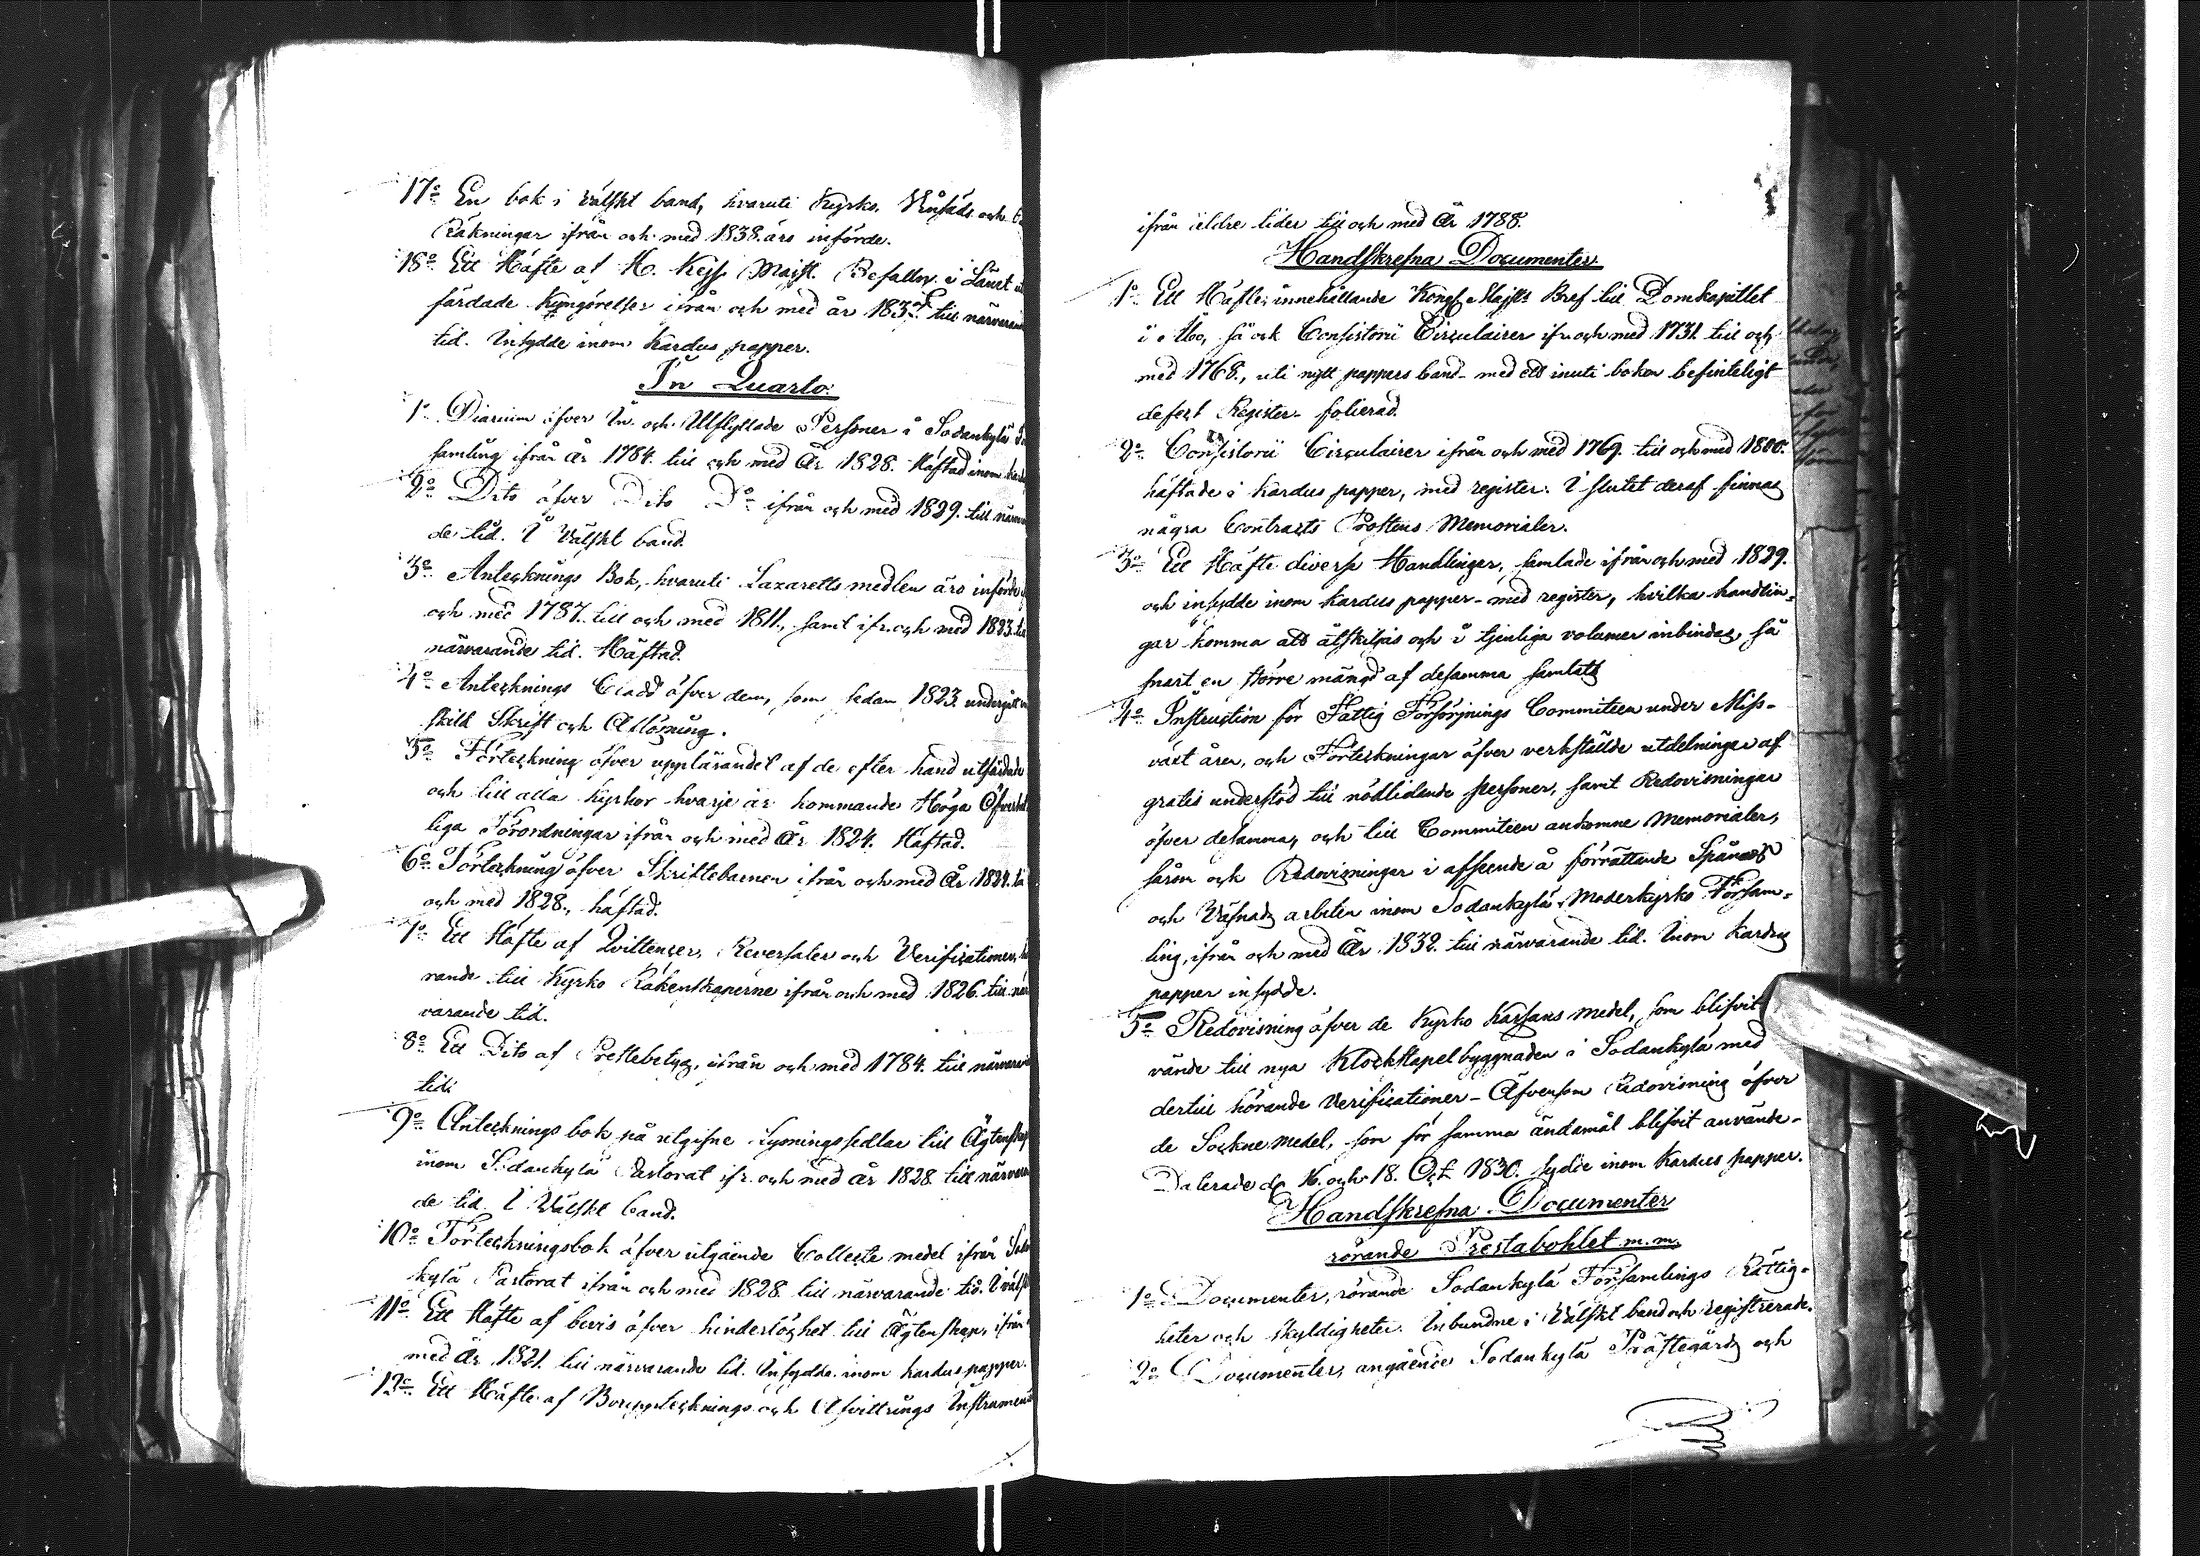 17:o En bok i Wälskt band, hvaruti Kyrko. Vinsäds och
Räkningar ifrån och med 1838. års införde.
18:o Ett Häfte af H. Kejs. Majst. Befallnr. i Länet
färdade Kungörelser ifrån och med år till närvaran
tid. Insydde inom Kardus papper.
In Quarto:
1:o Diarium öfver In- och Utflyttade Personer i Sodankylä
samling ifrån År 1784. till och med År 1828. Häftad inom
2:o Dito öfver Dito D:o ifrån och med 1829. till närva
de tid. I Wälskt band.
3:o Antecknings Bok, hvaruti Lazaretts medlen äro införde
och med 1787. till och med 1811., samt ifr. och med 1823.
närvarande tid. Häftad.
4:o Antecknings Cladd öfver dem, som sedan 1823. undergått
skild Skrift och Aflösning.
5:o Förteckning öfver uppläsandet af de efter hand utfärdade
och till alla kyrkor hvarje år kommande Höga Öfverhet
liga Förordningar ifrån och med År 1824. Häftad.
6:o Förteckning öfver Skriftebarnen ifrån och med År 1824.
och med 1828., häftad.
7:o Ett Häfte af Qvittencer, Reversaler och Verificationer,
rande till Kyrko Räkenskaperne ifrån och med 1826. till när
varande tid.
8:o Ett Dito af Prestebetyg, ifrån och med 1784. till närvaran
tid.
9:o Antecknings bok på utgifne Lysningssedlar till Ägtenskap
inom Sodankylä Pastorat ifr. och med år 1828. till närvaran
de tid. I Wälskt band.
10:o Förteckningsbok öfver utgående Collecte medel ifrån Sodan
kylä Pastorat ifrån och med 1828. till närvarande tid. I Wälsk
11:o Ett Häfte af bevis öfver hinderlöshet till Ägtenskap, ifrån
med År 1821. till närvarande tid. Insydda inom kardus papper.
12:o Ett Häfte af Bouppteknings och Afvittrings Instrument
ifrån äldre tider till och med År 1788.
Handskrefna Documenter
1:o Ett Häfte, innehållande Kongl. Majsts Bref till Domkapitlet
i Åbo, så ock Consistorii Circulairer ifr. och med 1731. till och
med 1768., uti nytt pappers band - med ett inuti boken befinteligt
defect Register - folierad.
2:o Consistorii Circulairer ifrån och med 1769. till och med 1800.
häftade i kardus papper, med register. I slutet deraf finnas
några Contracts Prostens Memorialer.
3:o Ett Häfte diverse Handlingar, samlade ifrån och med 1829.
och insydde inom kardus papper - med register, hvilka handlin-
gar komma att åtskiljas och i tjenliga volumer inbindas, så
snart en större mängd af desamma samlats
4:o Instruction för Fattig Försörjnings Committeen under Miss-
växt åren, och Förteckningar öfver verkstälde utdelningar af
gratis understöd till nödlidande personer, samt Redovisningar
öfver desamma, och till Committeen ankomne Memorialer,
såsom ock Redovisningar i afseende å förrättande Spånads
och Väfnads arbeten inom Sodankylä Moderkyrko Försam-
ling, ifrån och med År 1832. till närvarande tid. Inom Kardus
papper insydde.
5:o Redovisning öfver de Kyrko Kassans medel, som blifvit
vände till nya Klockstapel byggnaden i Sodankylä med
dertill hörande Verificationer - Äfvensom Redovisning öfver
de Sockne medel, som för samma ändamål blifvit använde -
Daterade d. 16. och 18. Oct. 1830. sydde inom Kardus papper.
Handskrefna Documenter
rörande Prestabohlet m. m.
1:o Documenter, rörande Sodankylä Församlings Rättig-
heter och skyldigheter. Inbundne i Wälskt band och registrerade.
2:o Documenter, angående Sodankylä Prästegårds och